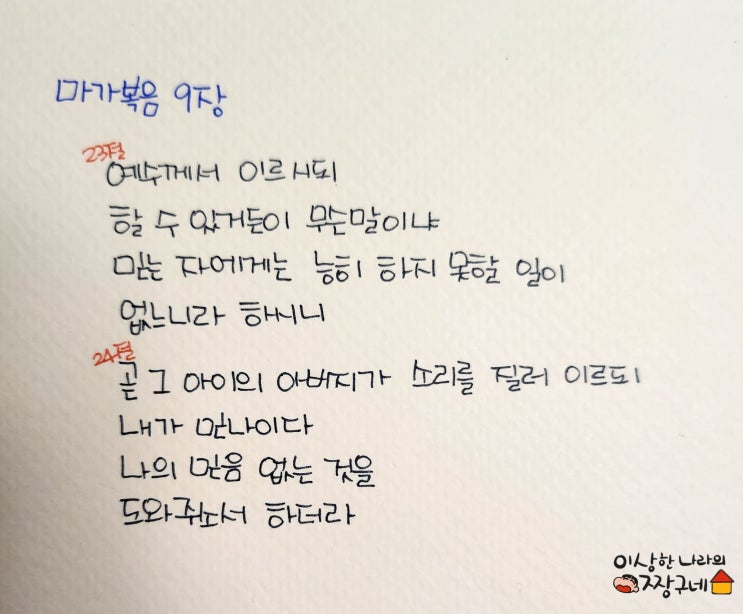 마가복음 9장
23절
예수께서 이르시되
할 수 있거든이 무슨말이냐
믿는 자에게는 능히 하지 못할 일이
없느니라 하시니
24절
곧 그 아이의 아버지가 소리를 질러 이르되
내가 믿나이다
나의 믿음 없는 것을
도와주소서 하더라
이상한 나라의
짱구네